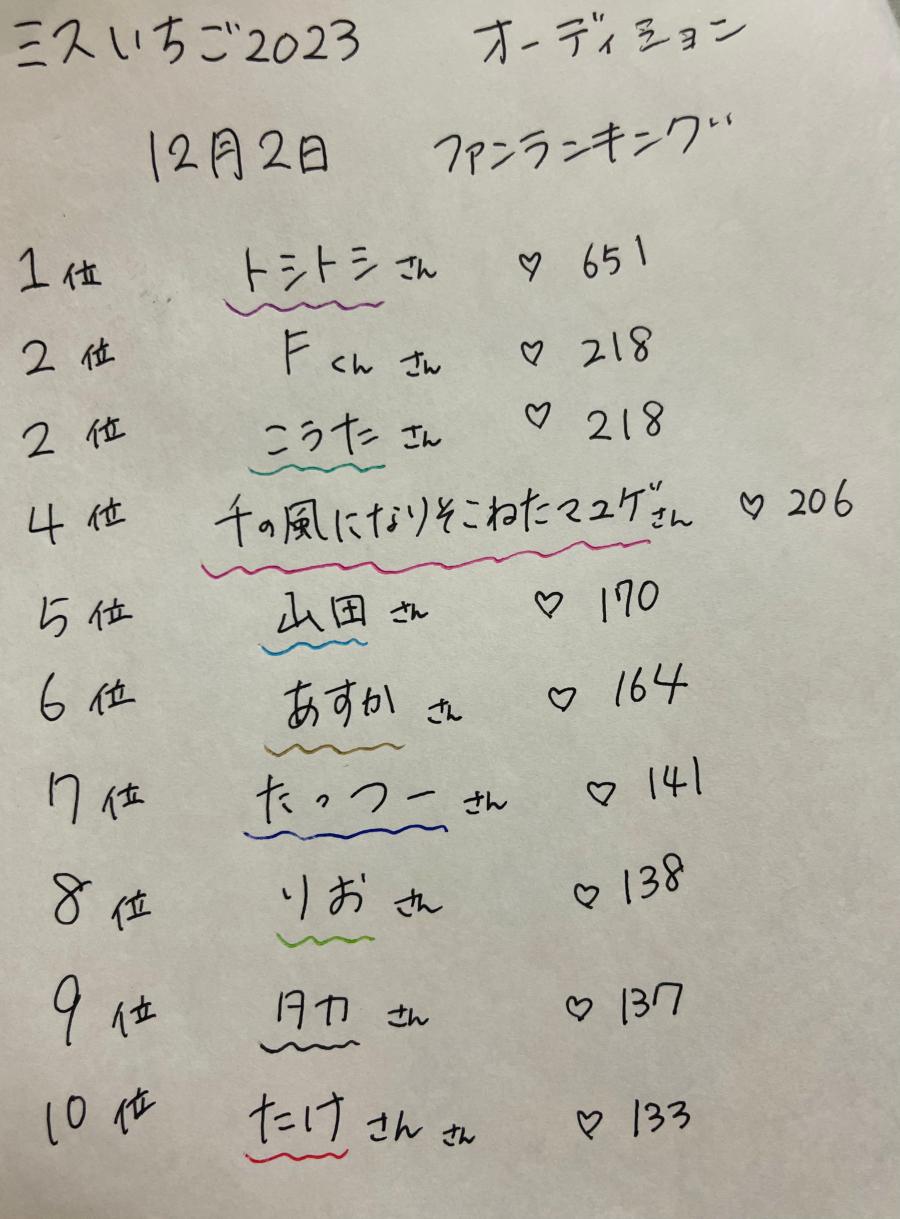 ミスいちご2023 オーディション
12月2日 ファンランキング
1位 トシトシさん ♡ 651
2位 Fくんさん ♡ 218
2位 こうたさん ♡ 218
4位 千の風になりそこねたマユゲさん ♡ 206
5位 山田さん ♡ 170
6位 あすかさん ♡ 164
7位 たっつーさん ♡ 141
8位 りおさん ♡ 138
9位 タカさん ♡ 137
10位 たけさんさん ♡ 133